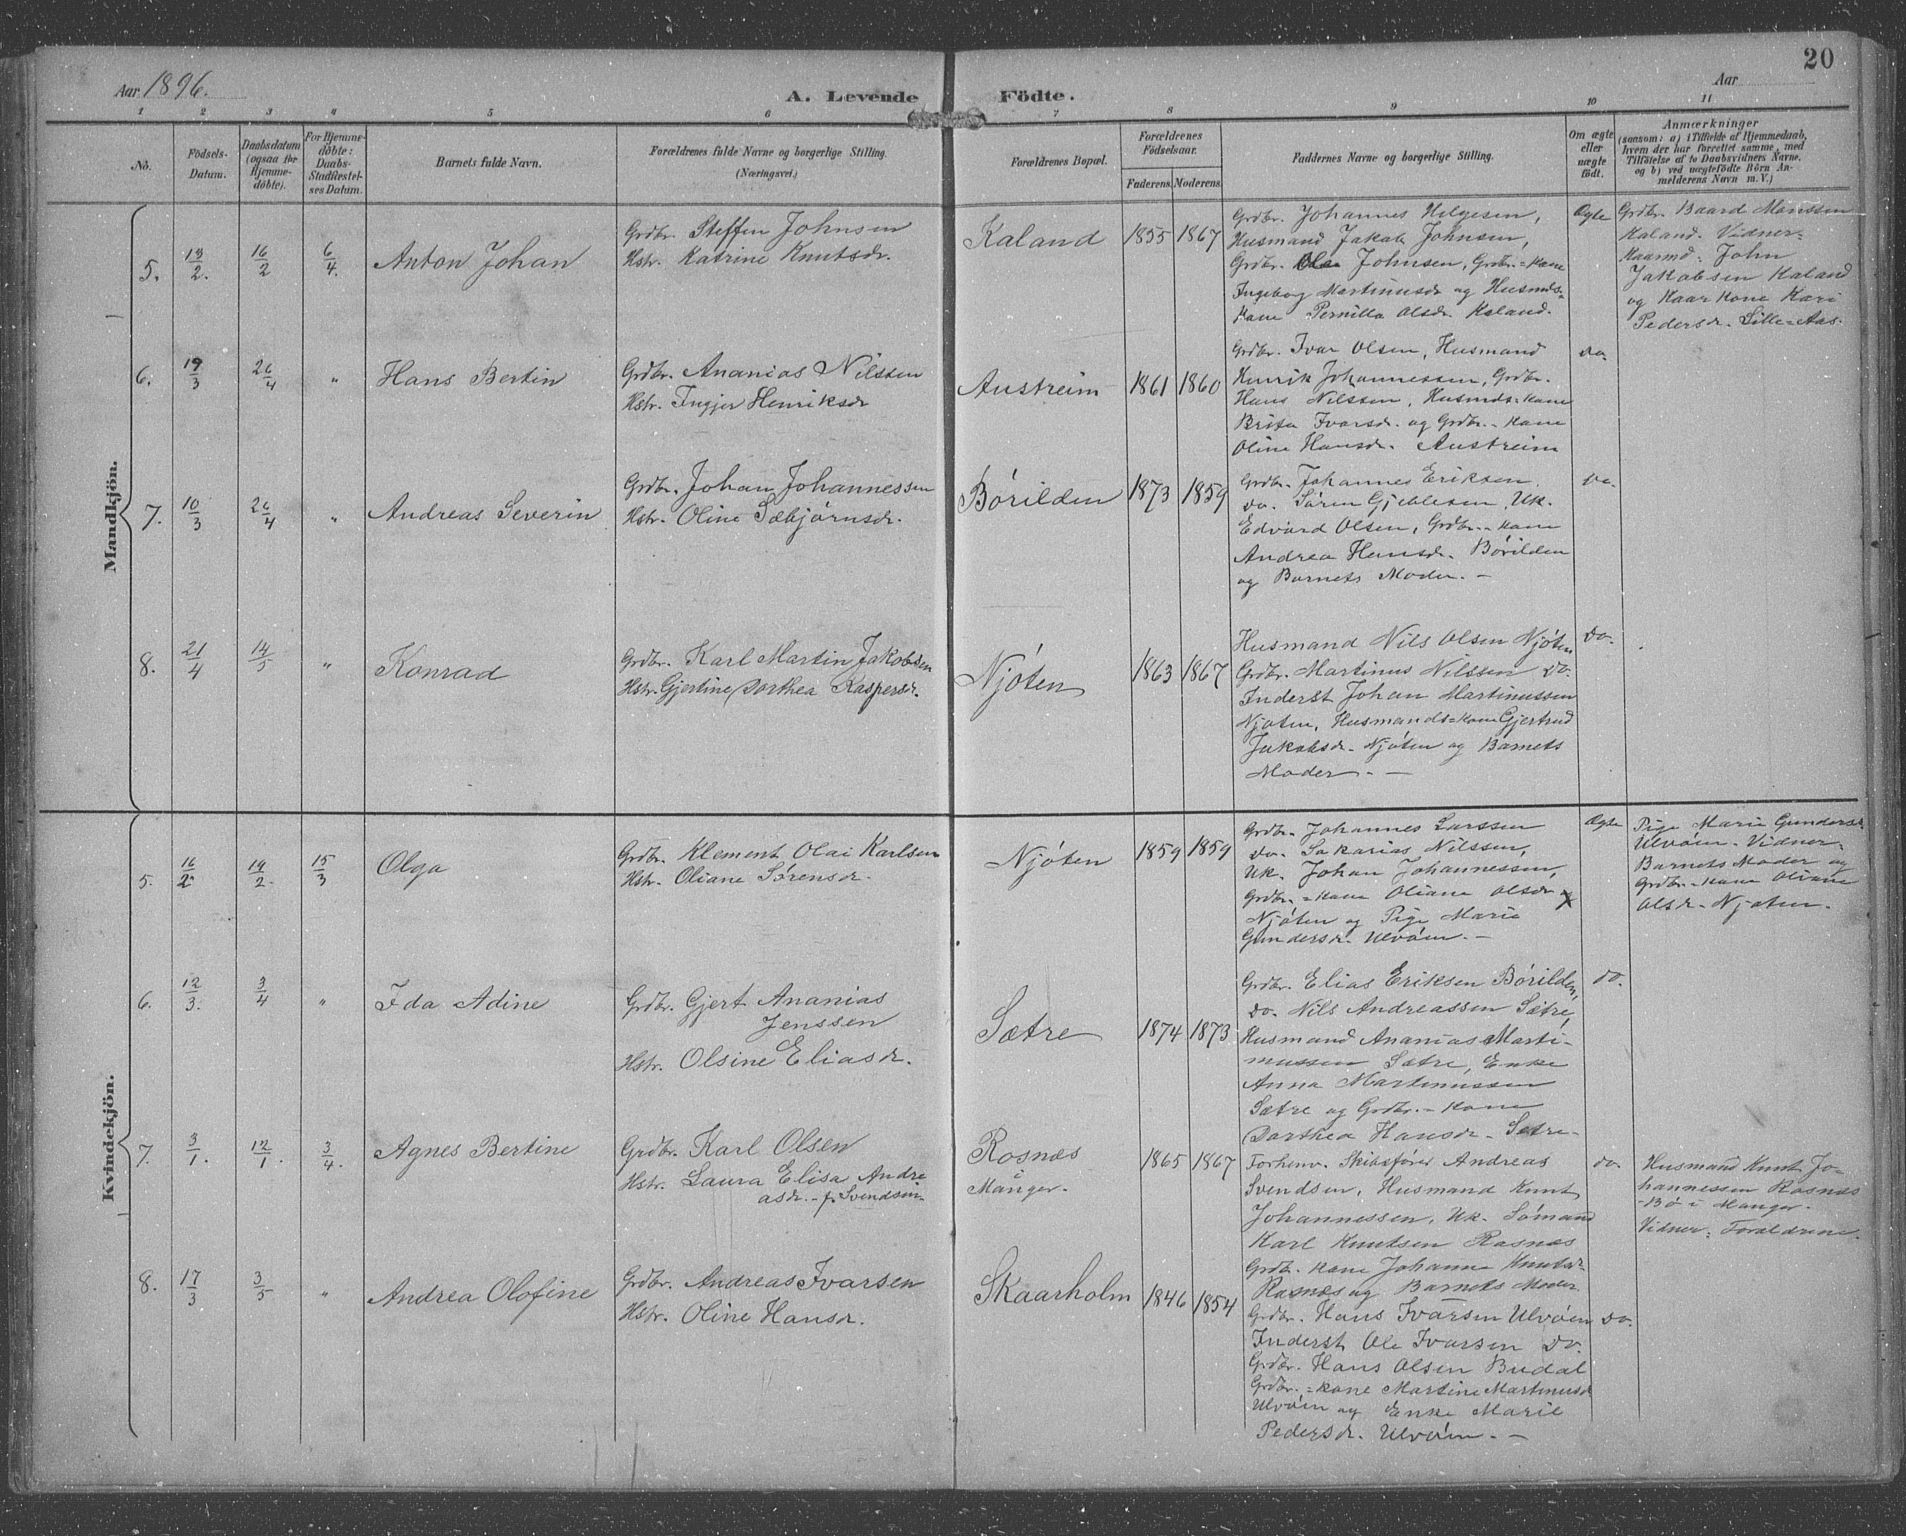 20
Aar 1896.
A. Levende Födte.
Aar
1 2 3 4 5 6 7 8 9 10 11
No.
Födsels-
Datum.
Daabsdatum
(ogsaa for
Hjemme-
döbte).
For Hjemme-
döbte:
Daabs-
Stadfæstel-
ses Datum.
Barnets fulde Navn.
Forældrenes fulde Navne og borgerlige Stilling.
(Næringsvei.)
Forældrenes Bopæl.
Forældrenes
Födselsaar.
Faderens. Moderens.
Faddernes Navne og borgerlige Stilling.
Om ægte
eller
uægte
födt.
Anmærkninger
(saasom: a) i Tilfælde af Hjemmedaab,
hvem der har forrettet samme, med
Tilföielse af to Daabsvidners Navne.
og b) ved uægtefödte Börn An-
melderens Navn m. V.)
Mandkjön.
5. 13/2. 16/2 6/4. Anton Johan
Grdbr. Steffen Johnsen
Hstr. Katrine Knutsdr.
Kaland 1855 1867
Grdbr. Johannes Helgesen,
Husmand Jakob Johnsen,
Grdbr. Ola Johnsen, Grdbr.=kone
Ingeborg Martinusdr og Husmds=
kone Pernilla Olsdr. Kaland.
Ægte
Grdbr. Baard Monssen
Kaland. Vidner-
Kaarmd. John
Jakobsen Kaland
og Kaar kone Kari
Pedersdr. Lille-Aas.
6. 19/3 26/4 " Hans Bertin
Grdbr. Ananias Nilssen
Hstr. Ingjer Henriksdr
Austreim 1861 1860
Grdbr. Ivar Olsen, Husmand
Henrik Johannessen, Grdbr.
Hans Nilssen, Husmds=kone
Brita Ivarsdr. og Grdbr.-kone
Oline Hansdr. Austreim
do.
7. 10/3 26/4 " Andreas Severin
Grdbr. Johan Johannessen
Hstr. Oline Sæbjørnsdr.
Børilden 1873 1859
Grdbr. Johannes Eriksen.
do. Søren Gjeblesen, Uk.
Edvard Olsen, Grdbr.-kone
Andrea Hansdr. Børilden
og Barnets Moder. —
do.
8. 21/4 14/5 " Konrad
Grdbr. Karl Martin Jakobsen
Hstr. Gjertine Dorthea Kaspersdr.
Njøten 1863 1867
Husmand Nils Olsen Njøten
Grdbr. Martinus Nilssen do.
Inderst Johan Martinussen
Njøten, Husmands=kone Gjertrud
Jakobsdr. Njøten og Barnets
Moder. —
do.
Kvindekjön.
5. 16/2 19/2. 15/3 Olga
Grdbr. Klement Olai Karlsen
Hstr. Oliane Sørensdr.
Njøten 1859 1859
Grdbr. Johannes Larssen
do. Sakarias Nilssen,
Uk. Johan Johannessen,
Grdbr.=kone Oliane Olsdr
Njøten og Pige Marie
Gundersdr. Ulvøen. —
Ægte
Pige Marie Gundersdr
Ulvøen. Vidner-
Barnets Moder og
Grdbr.-kone Oliane
Olsdr. Njøten.
6. 12/3. 3/4 " Ida Adine
Grdbr. Gjert Ananias
Jenssen
Hstr. Olsine Eliasdr.
Sætre 1874 1873
Grdbr. Elias Eriksen Børilden,
do. Nils Andreassen Sætre,
Husmand Ananias Marti-
nussen Sætre, Enke
Anna Martinussen
Sætre og Grdbr.-kone
Dorthea Hansdr. Sætre-
do.
7. 3/1. 12/1. 3/4. Agnes Bertine
Grdbr. Karl Olsen
Hstr. Laura Elisa Andre
asdr. - f. Svendsen-
Rosnæs
i
Manger.
1865 1867
Forhenv. Skibsfører Andreas
Svendsen, Husmand Knut
Johannessen, Uk. Sømand
Karl Knutsen Rosnæs
Grdbr. kone Johanne Knutsdr
Rosnæs og Barnets Moder
do.
Husmand Knut Jo-
hannessen Rosnæs
-Bø i Manger.
Vidner: Forældrene.
8. 17/3 3/5 " Andrea Olofine
Grdbr. Andreas Ivarsen
Hstr. Oline Hansdr.
Skaarholm 1846 1854
Grdbr. Hans Ivarsen Ulvøen
Inderst Ole Ivarsen do.
Grdbr. Hans Olsen Budal
Grdbr.=kone Martine Martinusdr
Ulvøen og Enke Marie
Pedersdr. Ulvøen. —
do.